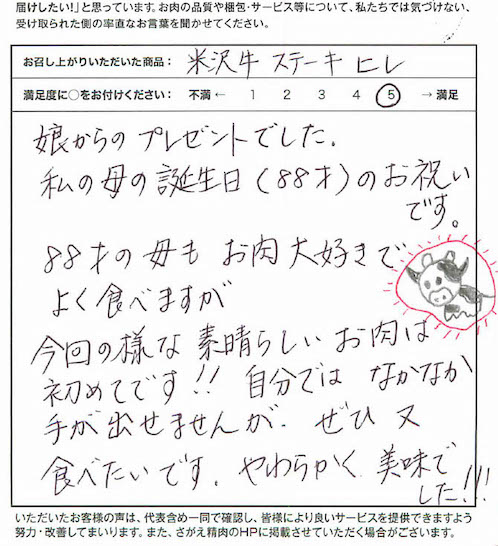 届けしたい!」と思っています。お肉の品質や梱包・サービス等について、私たちでは気づけない、
受け取られた側の率直なお言葉を聞かせてください。
お召し上がりいただいた商品： 米沢牛 ステーキ ヒレ
満足度に○をお付けください： 不満 ← 1 2 3 4 5 → 満足
娘からの プレゼントでした.
私の母の誕生日(88才)のお祝い
です。
88才の母も お肉大好きで
よく食べますが
今回の様な 素晴らしい お肉は
初めてです!! 自分では なかなか
手が出せませんが. ぜひ 又
食べたいです. やわらかく 美味で
した!!!
いただいたお客様の声は、代表含め一同で確認し、皆様により良いサービスを提供できますよう
努力・改善してまいります。また、さがえ精肉のHPに掲載させていただく場合がございます。